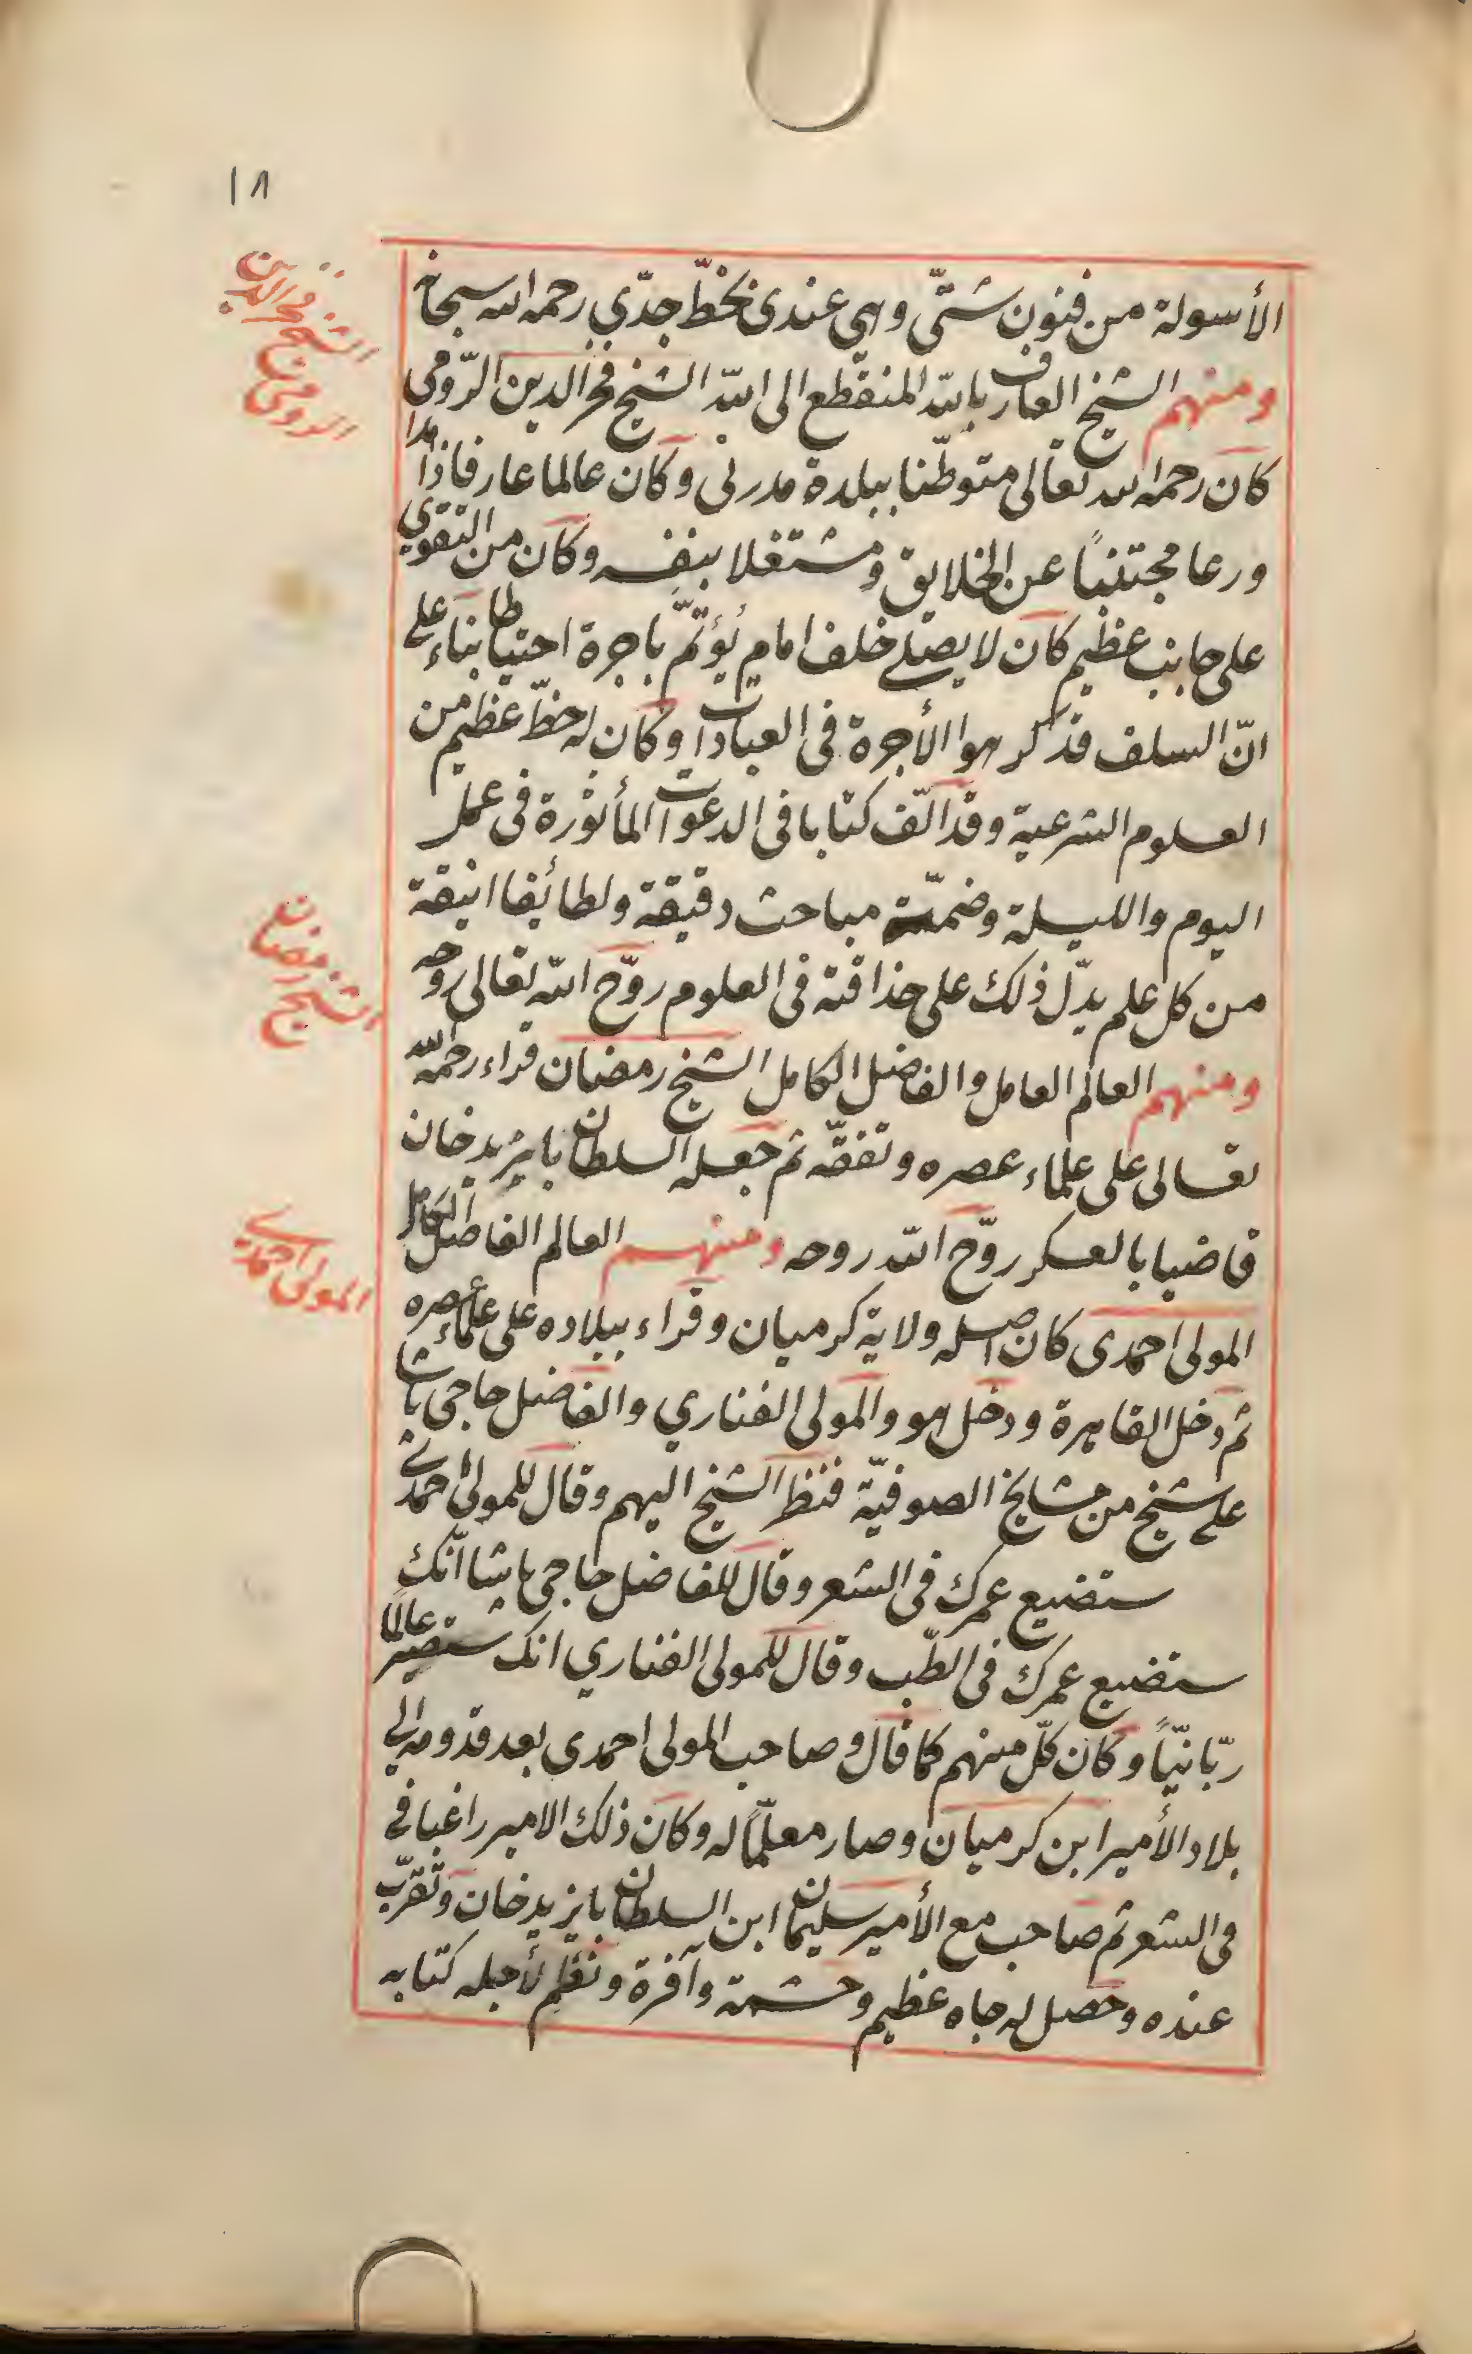 ١٨
الأسولة من فنون شتّى وهي عندى بخطّ جدّي رحمه الله سبحانه
الشيخ فخر الدين
الرومى
ومنهم الشيخ العارف بالله المنقطع الى الله الشيخ فخر الدين الرّومى
كان رحمه الله تعالى متوطّنا ببلدة مدرنى وكان عالما عارفا زاهدا
ورعا مجتنباً عن الخلايق ومشتغلا بنفسه وكان من التقوي
على جانب عظيم كان لا يصلى خلف امام يؤتمّ باجرة احتياطا بناء على
انّ السلف قد كرهوا الأجرة فى العبادات وكان له حظّ عظيم من
العلوم الشرعية وقد الّف كتابا فى الدعوات المأثورة فى عمل
اليوم والليلة وضمّنه مباحث دقيقة ولطائفا انيقة
من كل علم يدّل ذلك على حذاقته فى العلوم روّح الله تعالى روحه
الشيخ رمضان
ومنهم العالم العامل والفاضل الكامل الشيخ رمضان قراء رحمه الله
تعالى على علماء عصره وتفقّه ثم جعله السلطان بايزيد خان
قاضيا بالعسكر روّح الله روحه ومنهم العالم الفاضل الكامل
المولى احمدى
المولى احمدى كان اصله ولاية كرميان وقراء ببلاده على علماء عصره
ثم دخل القاهرة ودخل هو والمولى الفناري والفاضل حاجى باشا
على شيخ من مشايخ الصوفيّة فنظر الشيخ اليهم وقال للمولى احمدى
ستضيع عمرك فى الشعر وقال للفاضل حاجى باشا انّك
ستضيع عمرك فى الطّب وقال للمولى الفناري انك ستصير عالمًا
ربّانيّاً وكان كلّ منهم كما قال وصاحب المولى احمدى بعد قدومه الى
بلاد الأمير ابن كرميان وصار معلّمًا له وكان ذلك الامير راغبا فى
فى الشعر ثم صاحب مع الأمير سليمان ابن السلطان بايزيد خان وتقرّب
عنده وحصل له جاه عظيم وحشمة وآفرة ونظم لأجله كتابه